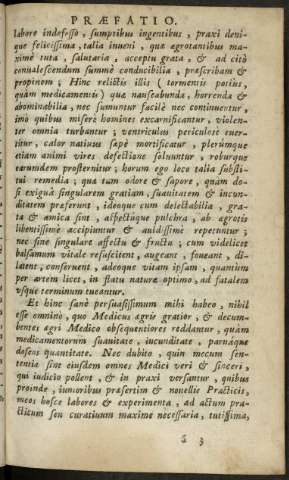 PRÆFATIO.
labore indefesso, sumptibus ingentibus, praxi deni-
que felicissima, talia inueni, quæ agrotantibus ma-
ximè tuta, salutaria, acceptu grata, & ad citò
conualescendum summè conducibilia, præscribam &
propinem; Hinc relictis illis (tormentis potiùs,
quàm medicamentis) quæ nauseabunda, horrenda &
abominabilia, nec sumuntur facilè nec continentur,
imò quibus miserè homines excarnificantur, violen-
ter omnia turbantur; ventriculus periculosè euer-
titur, calor natiuus sæpè mortificatur, plerúmque
etiam animi vires defectione soluuntur, roburque
earumdem prosternitur; horum ego loco talia substi-
tui remedia; quæ tum odore & sapore, quàm do-
si exiguâ singularem gratiam, suauitatem & iucun-
ditatem præferunt, ideoque cum delectabilia, gra-
ta & amica sint, aspectúque pulchra, ab agrotis
libentissimè accipiuntur & auidissimè repetuntur;
nec sine singulare affectu & fructu; cum videlicet
balsamum vitale resuscitent, augeant, foueant, di-
latent, conseruent, adeoque vitam ipsam, quantùm
per artem licet, in statu naturæ optimo, ad fatalem
vsque terminum tueantur.
Et hinc sanè persuasissimum mihi habeo, nihil
esse omninò, quo Medicus agris gratior, & decum-
bentes agri Medico obsequentiores reddantur, quàm
medicamentorum suauitate, iucunditate, paruáque
doseos quantitate. Nec dubito, quin mecum sen-
tentiæ sint eiusdem omnes Medici veri & sinceri,
qui iudicio pollent, & in praxi versantur, quibus
proinde, iunioribus præsertim & nouellis Practicis,
meos hosce labores & experimenta, ad actum pra-
cticum seu curatiuum maximè necessaria, tutissima,
3